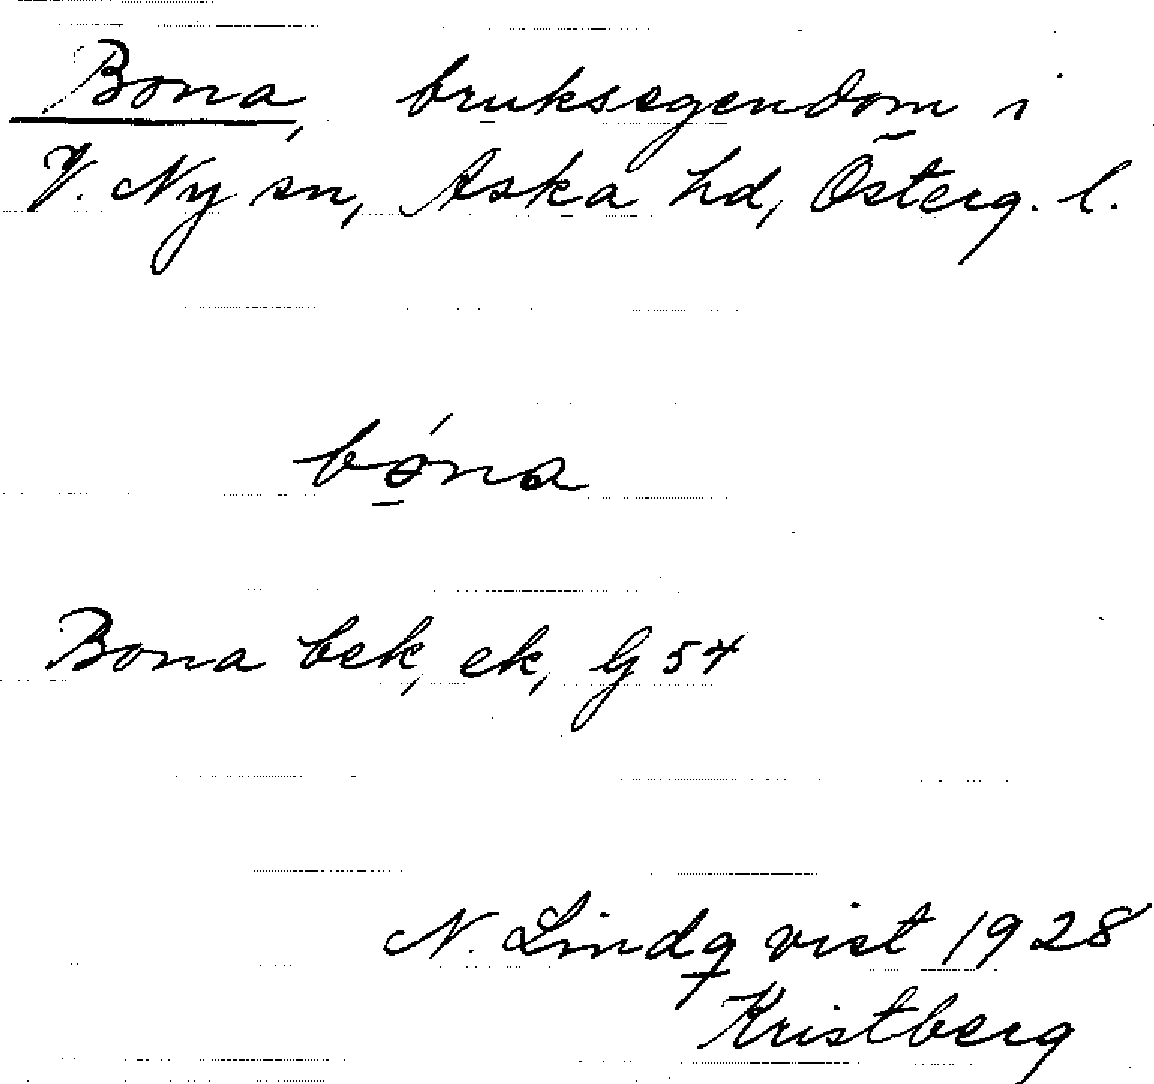 Bona, bruksegendom i
V. Ny sn, Aska hd, Österg. l.
bó̱na
Bona bek, ek, G 54
N. Lindqvist 1928
Kristberg